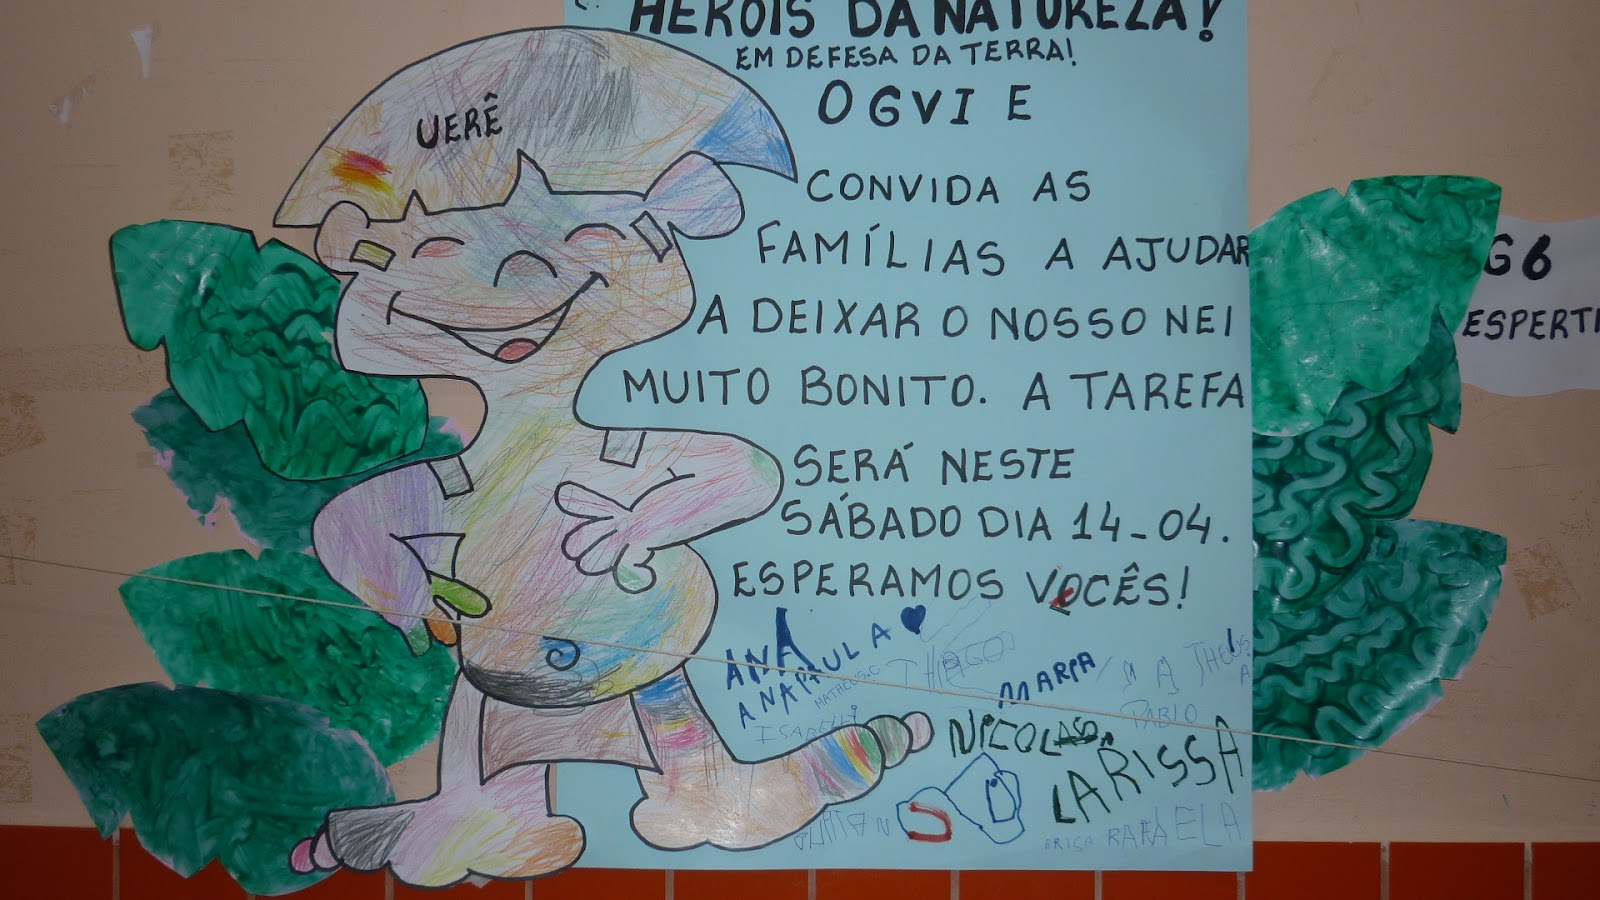 HERÓIS DA NATUREZA!
EM DEFESA DA TERRA!
O GVI E
CONVIDA AS
FAMÍLIAS A AJUDAR
A DEIXAR O NOSSO NEI
MUITO BONITO. A TAREFA
SERÁ NESTE
SÁBADO DIA 14-04.
ESPERAMOS VOCÊS!
UERÊ
G6
ESPERTI
ANA
ANA PAULA
MATHEUS.C
THIAGO
MARIA
ISABELLI
PABLO
NICOLAS
LARISSA
RAFAELA